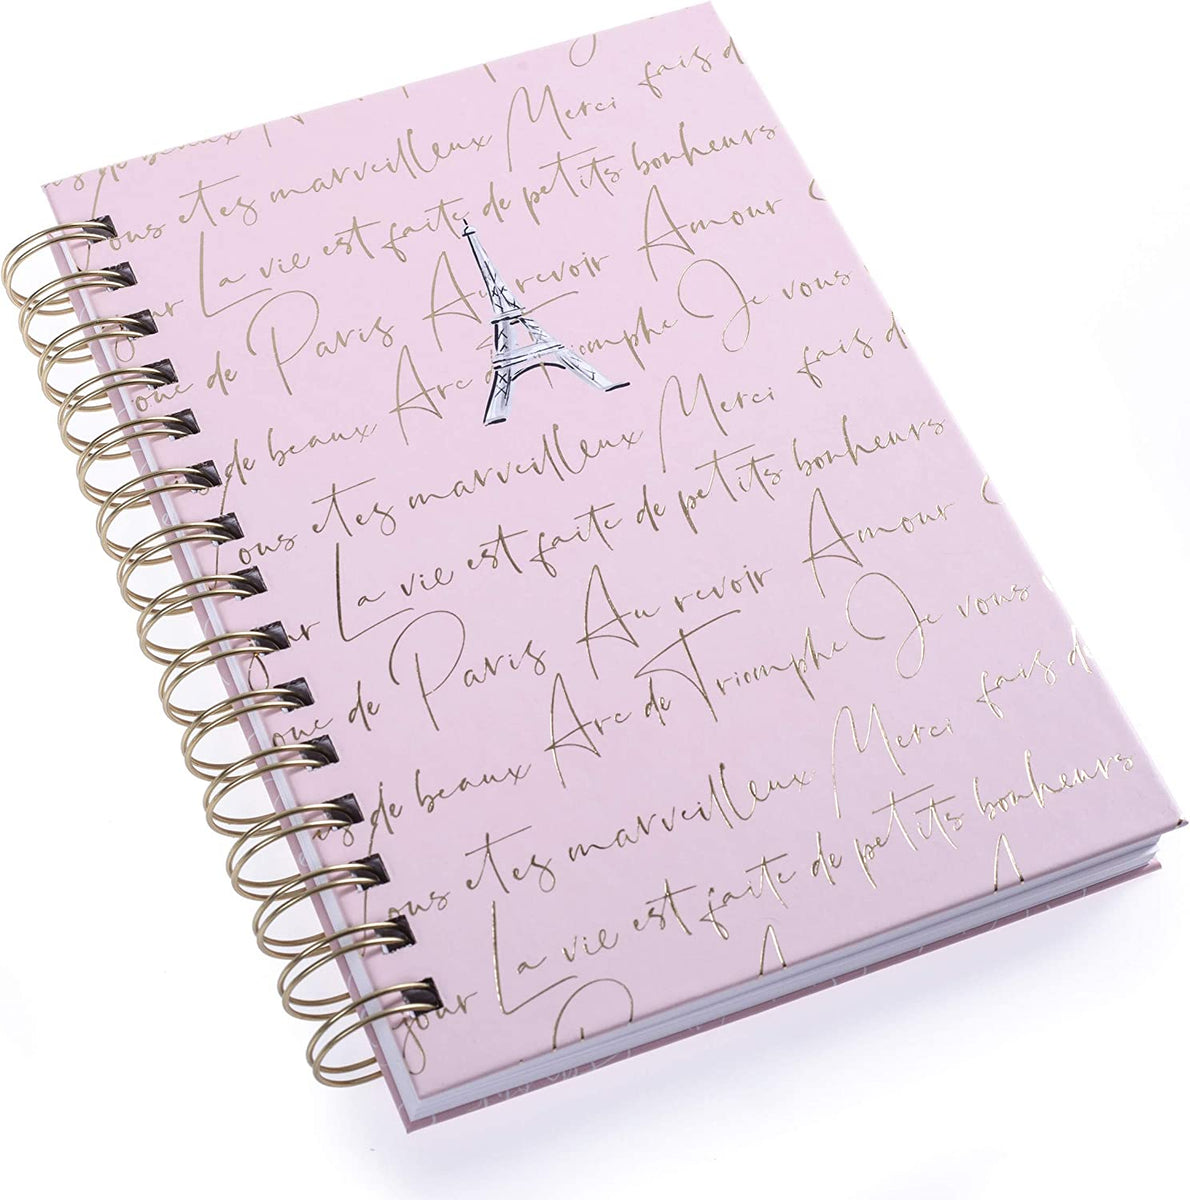 de beaux
Vous etes marveilleux Merci fais d
jour La vie est faite de petits bonheurs
de Paris Au revoir Amour
de beaux Arc de Triomphe Je vous
Vous etes marveilleux Merci fais d
jour La vie est faite de petits bonheurs
de Paris Au revoir Amour
de beaux Arc de Triomphe Je vous
Vous etes marveilleux Merci fais d
jour La vie est faite de petits bonheurs